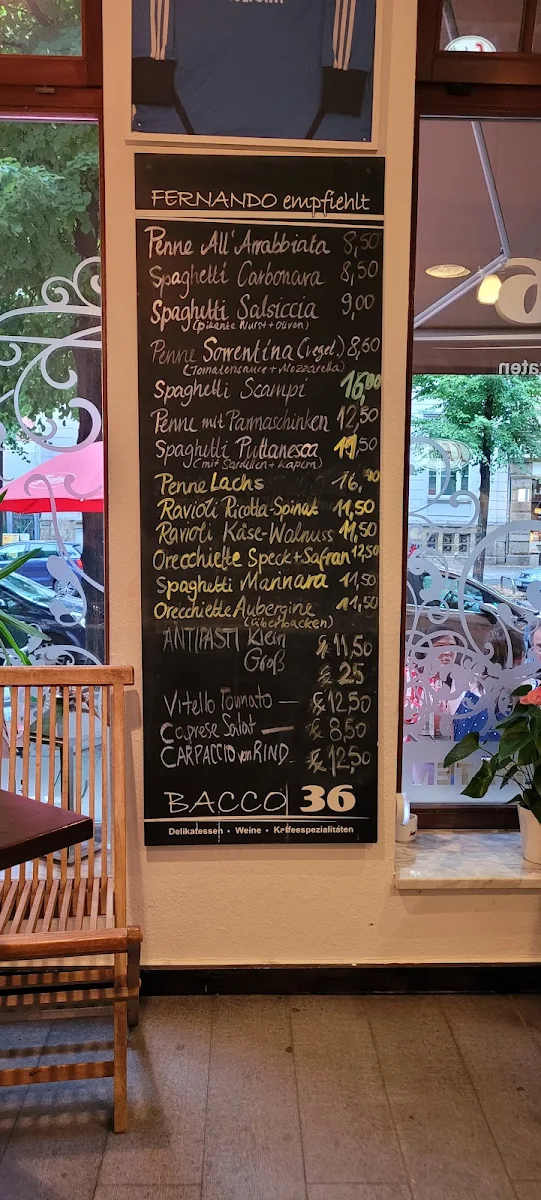 FERNANDO empfiehlt
Penne All'Arrabbiata 8,50
Spaghetti Carbonara 8,50
Spaghetti Salsiccia 9,00
(Pikante Wurst + oliven)
Penne Sorrentina (veget.) 8,60
(Tomatensauce + Mozzarella)
Spaghetti Scampi 16,00
Penne mit Parmaschinken 12,50
Spaghetti Puttanesca 11,50
(mit Sardellen + Kapern)
Penne Lachs 16,
Ravioli Ricotta-Spinat 11,50
Ravioli Käse-Walnuss 11,50
Orecchiette Speck + Safran 12,50
Spaghetti Marinara 11,50
Orecchiette Aubergine 11,50
(überbacken)
ANTIPASTI Klein 11,50
Groß 25
Vitello Tonnato — 12,50
Caprese Salat — 8,50
CARPACCIO von RIND 12,50
BACCO 36
Delikatessen • Weine • Kaffeespezialitäten